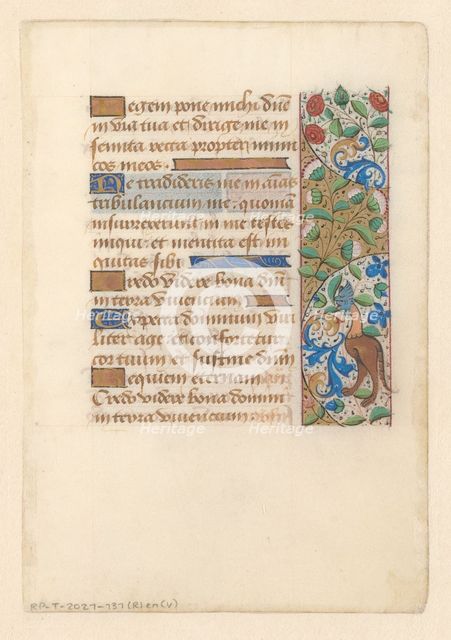 Legem pone michi dn̄e
in via tua et dirige me in
semita recta propter inimi
cos meos.
Ne tradideris me in aīas
tribulancium me: quoniā
insurrexerunt in me testes
iniqui: et mentita est ini
quitas sibi
Credo videre bona dn̄i
in terra viventium
Expecta dominum vi
liter age
cor tuum et sustine dn̄m
Requiem eternam
Credo videre bona domini
in terra viventium
RP-T-2021-131(R)en(V)